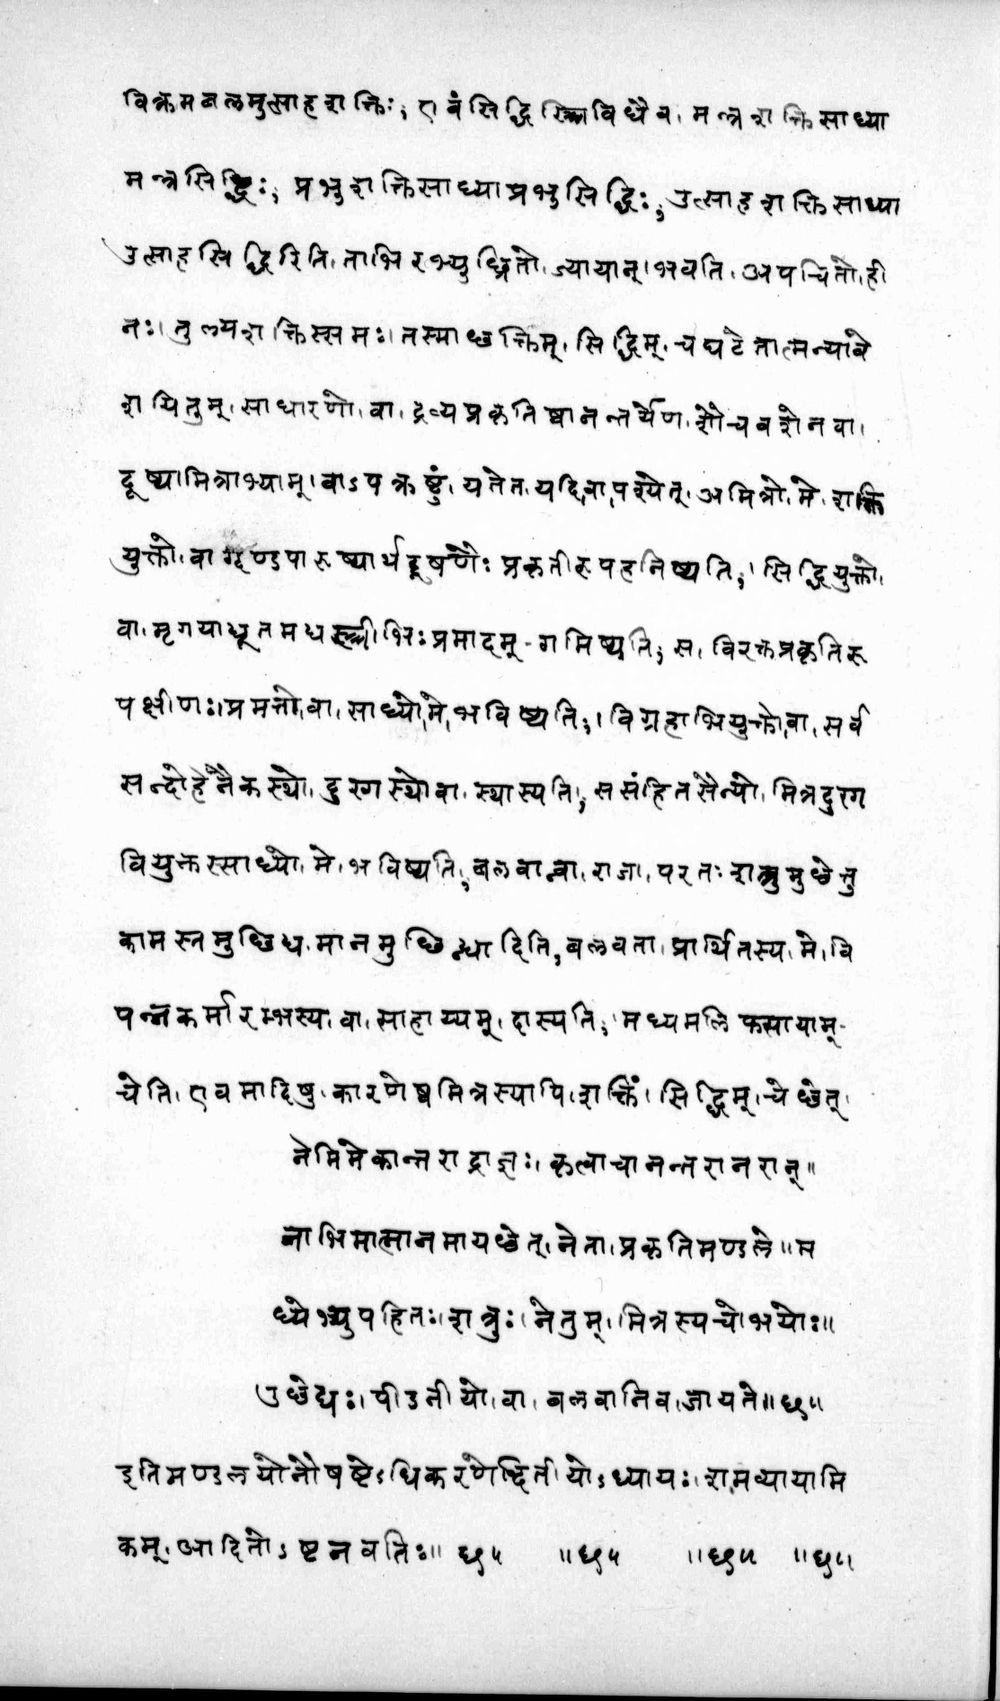 विक्रमबलमुत्साहशक्तिः; एवं सिद्धिस्त्रिविधैव. मन्त्रशक्तिसाध्या
मन्त्रसिद्धिः; प्रभुशक्तिसाध्याप्रभुसिद्धिः; उत्साहशक्तिसाध्या
उत्साहसिद्धिरिति. ताभिरभ्युच्छ्रितो. ज्यायान्।भवति. अपचितो।ही
नः।तुल्यशक्तिस्समः।तस्माच्छक्तिम्. सिद्धिम्. चघटेतात्मन्यावे
शयितुम्. साधारणो. वा. द्रव्यप्रकृतिष्वानन्तर्येण. शौचवशेनवा।
दूष्यामित्राभ्याम्।वाऽपक्रष्टुं. यतेत. यदि।वा।पश्येत्. अमित्रो. मे. शक्ति
युक्तो. वाग्दण्डपारुष्यार्थदूषणैः प्रकृतीरुपहनिष्यति;। सिद्धियुक्तो.
वा. मृगयाद्यूतमद्यस्त्रीभिः प्रमादम्-गमिष्यति; स. विरक्तप्रकृतिरु
पक्षीणः।प्रमत्तो।वा. साध्यो।मे।भविष्यति;। विग्रहाभियुक्तो।वा. सर्व
सन्दोहेनैकस्थो. दुरगस्थोवा. स्थास्यति; ससंहितसैन्यो. मित्रदुरग
वियुक्तस्साध्यो. मे. भविष्यति; बलवान्वा. राजा. परतः शत्रुमुच्छेत्तु
कामस्तमुच्छिद्य. मानमुच्छिन्द्यादिति, बलवता. प्रार्थितस्य. मे. वि
पन्नकर्मारम्भस्य. वा. साहाय्यम्. दास्यति;। मध्यमलिप्सायाम्-
चेति. एवमादिषु. कारणेष्वमित्रस्यापि. शक्तिं. सिद्धिम्. चेच्छेत्.
नेमिमेकान्तराद्राज्ञः. कृत्वाचानन्तरानरान्॥
नाभिमात्मानमायच्छेत्. नेता. प्रकृतिमण्डले॥म
ध्येभ्युपहितः।शत्रुः।नेतुम्. मित्रस्यचोभयोः॥
उच्छेद्यः. पीडनीयो. वा. बलवानिव. जायते॥छ॥
इतिमण्डलयोनौषष्टेऽधिकरणेद्वितीयोऽध्यायः. शमव्यायामि
कम्. आदितोऽष्टनवतिः॥ छ॥ ॥छ॥ ॥छ॥ ॥छ॥